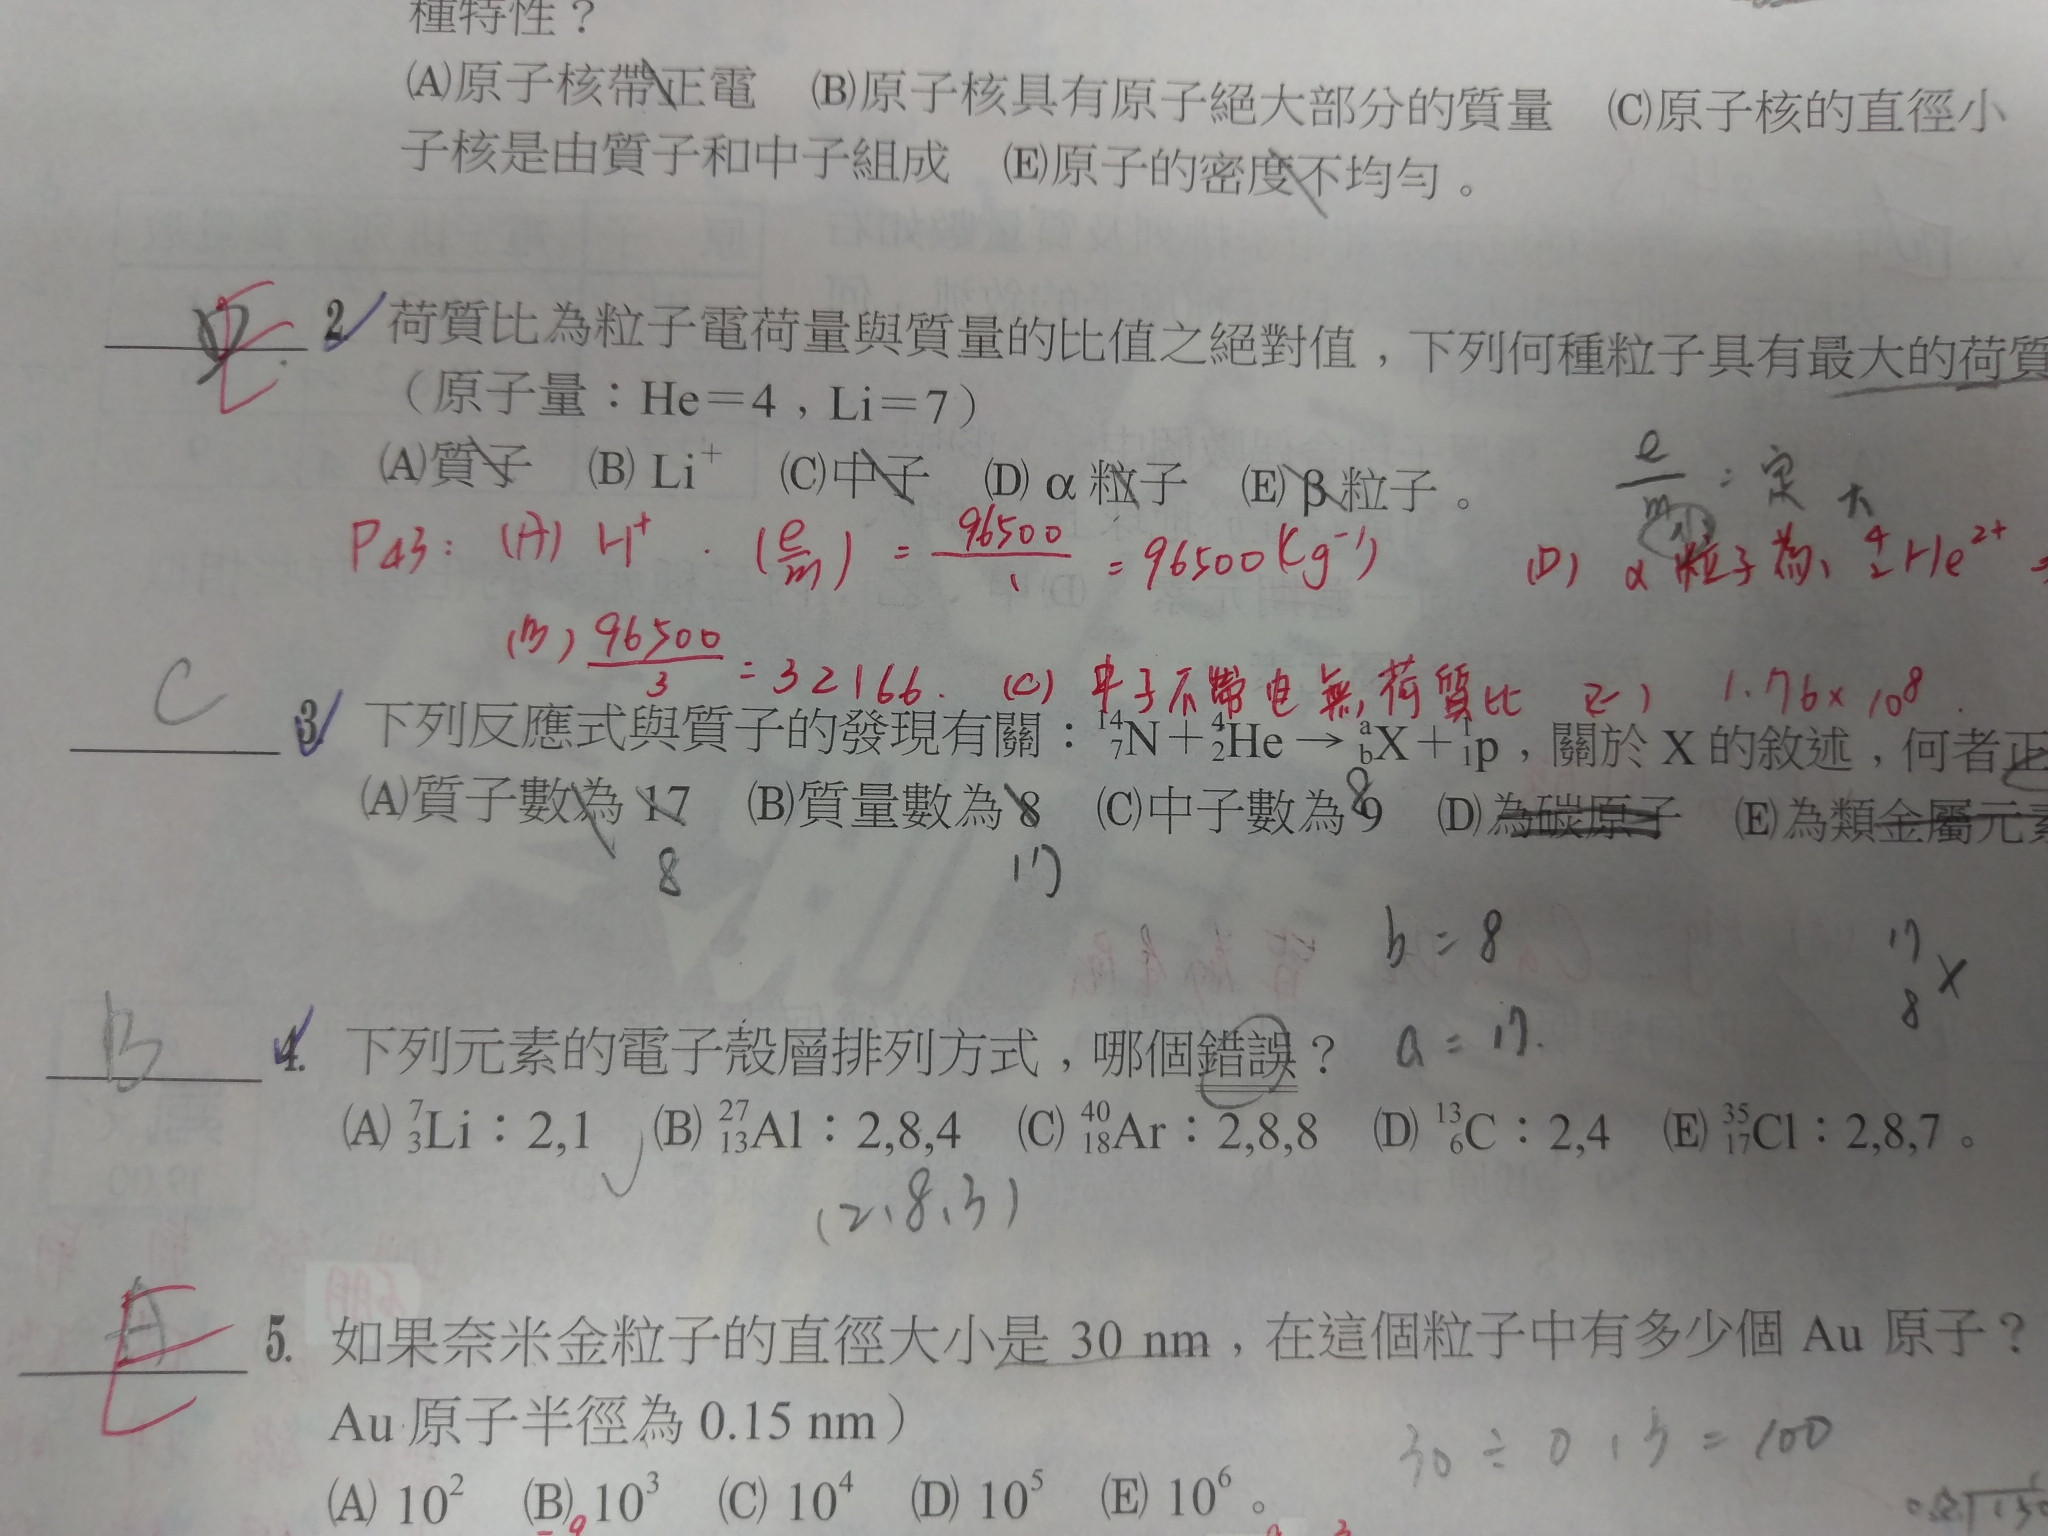 種特性？
(A)原子核帶正電　(B)原子核具有原子絕大部分的質量　(C)原子核的直徑小
子核是由質子和中子組成　(E)原子的密度不均勻。
E 2. 荷質比為粒子電荷量與質量的比值之絕對值，下列何種粒子具有最大的荷質
（原子量：He＝4，Li＝7）
(A)質子　(B) Li⁺　(C)中子　(D) α 粒子　(E) β 粒子。
e/m : 定 大
小
P43: (A) H⁺ . (e/m) = 96500/1 = 96500 (g⁻¹)　(D) α 粒子為 ⁴₂He²⁺
(B) 96500/3 = 32166. (C) 中子不帶電無荷質比　E) 1.76×10⁸
C 3. 下列反應式與質子的發現有關：¹⁴₇N＋⁴₂He→ᵃbX＋¹₁p，關於 X 的敘述，何者正
(A)質子數為 17　(B)質量數為 8　(C)中子數為 9　(D)為碳原子　(E)為類金屬元素
8　17
b = 8　17 8 X
B 4. 下列元素的電子殼層排列方式，哪個錯誤？ a = 17.
(A) ⁷₃Li：2,1　(B) ²⁷₁₃Al：2,8,4　(C) ⁴⁰₁₈Ar：2,8,8　(D) ¹³₆C：2,4　(E) ³⁵₁₇Cl：2,8,7。
(2,8,3)
A E 5. 如果奈米金粒子的直徑大小是 30 nm，在這個粒子中有多少個 Au 原子？
Au 原子半徑為 0.15 nm）
30 ÷ 0.3 = 100
(A) 10²　(B) 10³　(C) 10⁴　(D) 10⁵　(E) 10⁶。